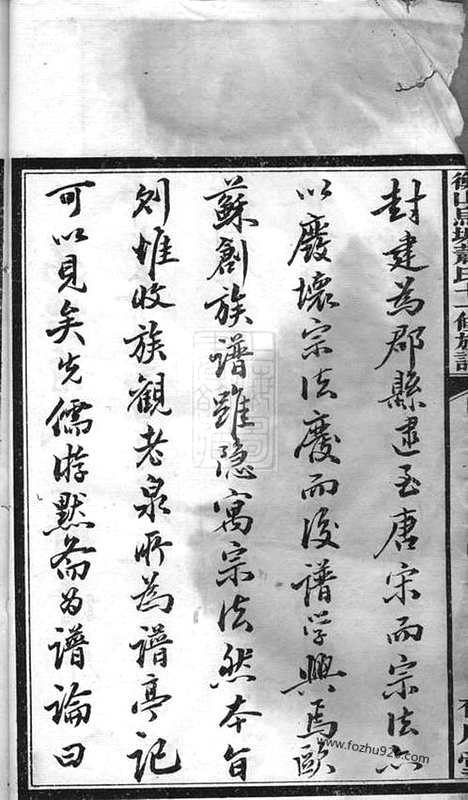 封建為郡縣逮至唐宋而宗法亦
以廢壞宗法廢而後譜學興焉歐
蘇創族譜雖隐寓宗法然本旨
則惟收族觀老泉所為譜亭記
可以見矣先儒游默齋為譜論曰
www.fozhu920.com